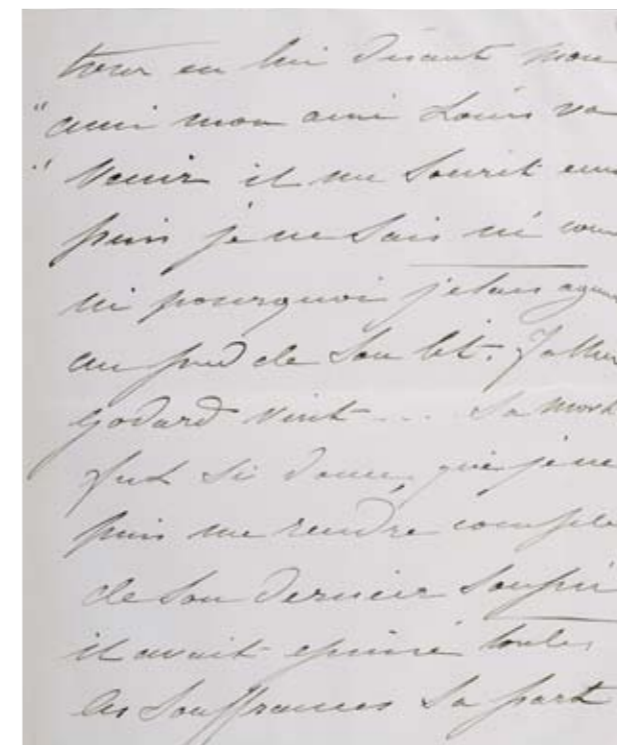 tour en lui disant mon
" ami mon ami Louis va
" venir il me sourit
puis je ne sais ni com
ni pourquoi j'étais agen
au pied de son lit.
Godard vint ... Sa mort
fut si douce, que je ne
puis me rendre compte
de son dernier soupir
il avait épuisé toutes
les souffrances Sa part